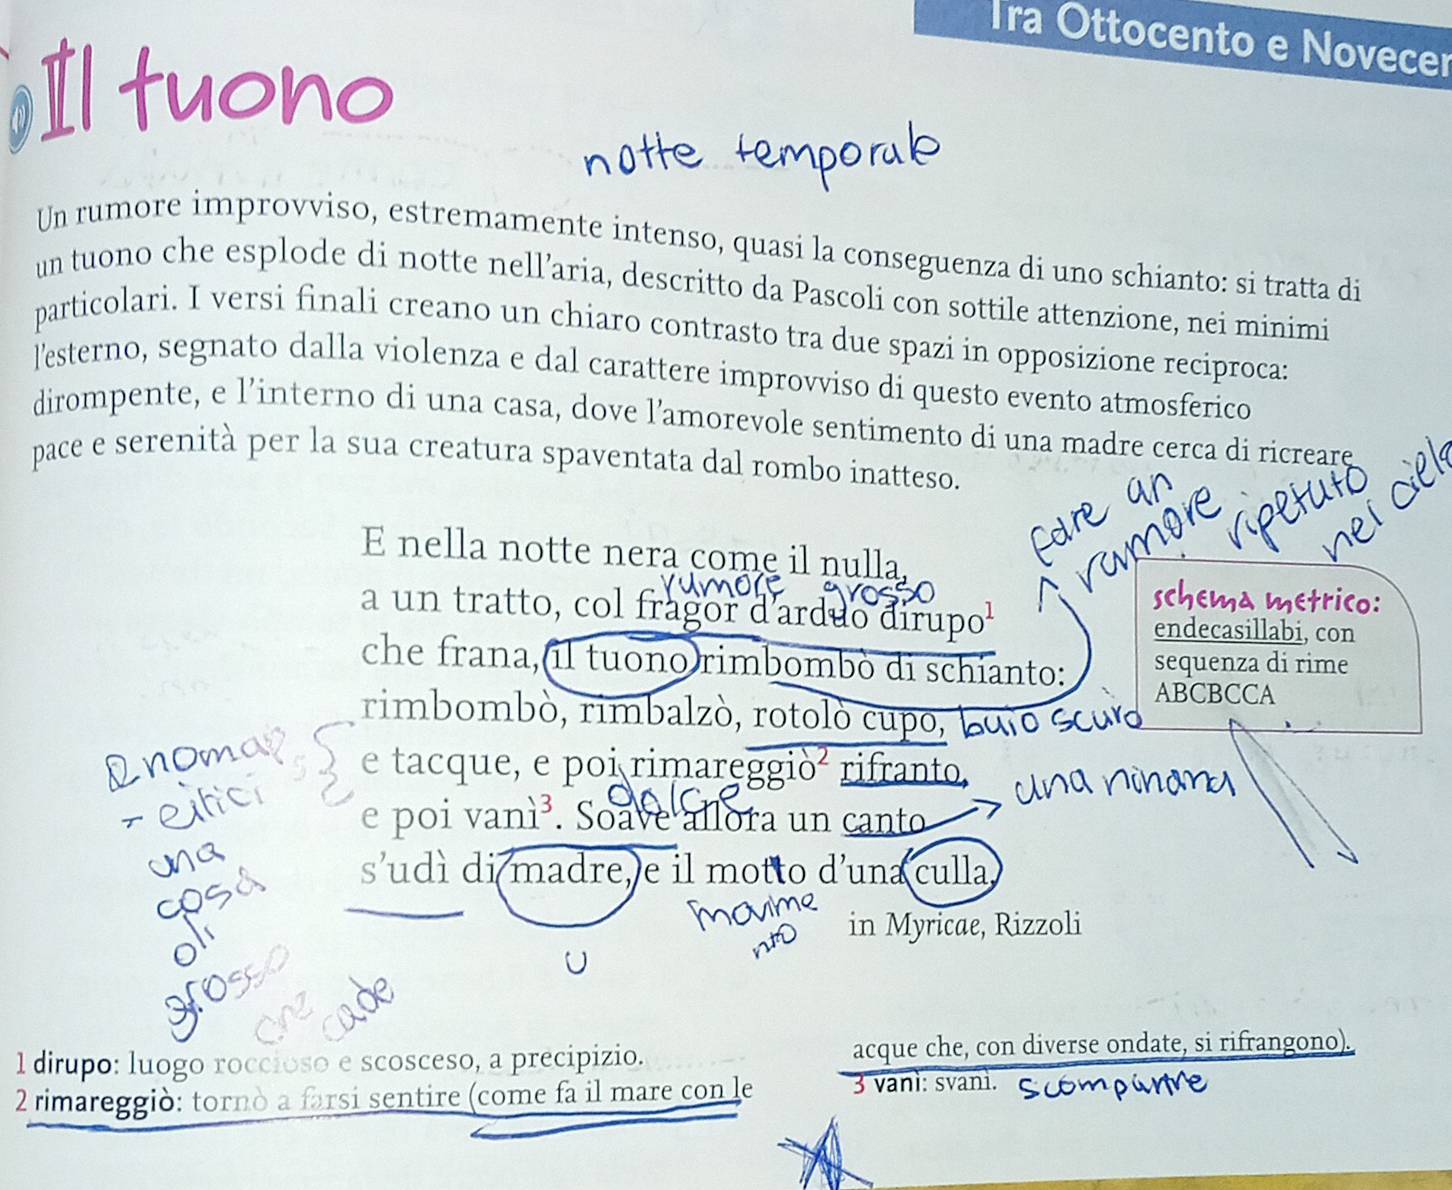 Tra Ottocento e Novecen
Il tuono
notte temporale
Un rumore improvviso, estremamente intenso, quasi la conseguenza di uno schianto: si tratta di
un tuono che esplode di notte nell'aria, descritto da Pascoli con sottile attenzione, nei minimi
particolari. I versi finali creano un chiaro contrasto tra due spazi in opposizione reciproca:
l'esterno, segnato dalla violenza e dal carattere improvviso di questo evento atmosferico
dirompente, e l'interno di una casa, dove l'amorevole sentimento di una madre cerca di ricreare
pace e serenità per la sua creatura spaventata dal rombo inatteso.
fare un
rumore ripetuto
nel cielo
E nella notte nera come il nulla,
rumore grosso
a un tratto, col fragor d'arduo dirupo¹
che frana, il tuono rimbombò di schianto:
rimbombò, rimbalzò, rotolò cupo, buio scuro
e tacque, e poi rimareggiò² rifranto,
dolce
e poi vanì³. Soave allora un canto
una ninana
s'udì di madre, e il moto d'una culla.
movime
nto
in Myricae, Rizzoli
schema metrico:
endecasillabi, con
sequenza di rime
ABCBCCA
una
cosa
grosso
che cade
1 dirupo: luogo roccioso e scosceso, a precipizio.
2 rimareggiò: tornò a farsi sentire (come fa il mare con le
acque che, con diverse ondate, si rifrangono).
3 vanì: svanì. scomparire